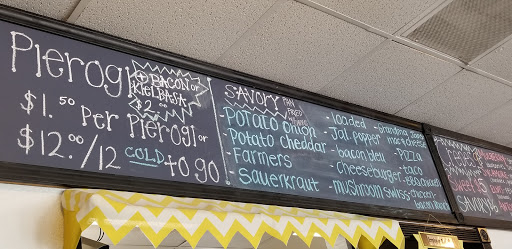 Pierogi
+ BACON or
KielBASA
$2.00
$1.50 Per Pierogi or
$12.00/12 COLD to go
SAVORY PAN
FRIED
-Potato onion
-Potato cheddar
-Farmers
-Sauerkraut
-Loaded
-Jal. popper
-bacon bleu
-cheeseburger
-mushroom swiss
mac & cheese
-Pizza
-taco
-chicken
bacon ranch
Sweet $
SAVORY